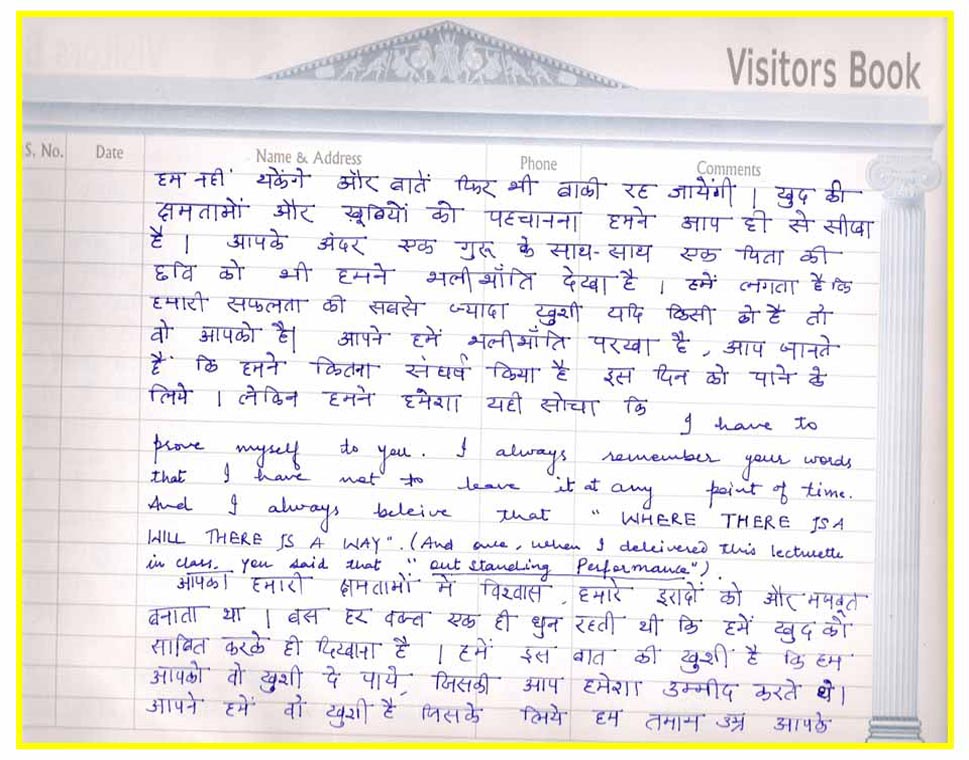 Visitors Book
S. No. Date Name & Address Phone Comments
हम नहीं थकेंगे और बातें फिर भी बाकी रह जायेंगी । खुद की
क्षमताओं और खूबियों को पहचानना हमने आप ही से सीखा
है । आपके अंदर एक गुरू के साथ-साथ एक पिता की
छवि को भी हमने भलीभाँति देखा है । हमें लगता है कि
हमारी सफलता की सबसे ज्यादा खुशी यदि किसी को है तो
वो आपको है। आपने हमें भलीभाँति परखा है, आप जानते
हैं कि हमने कितना संघर्ष किया है इस दिन को पाने के
लिये । लेकिन हमने हमेशा यही सोचा कि I have to
prove myself to you. I always remember your words
that I have not to leave it at any point of time.
And I always beleive that "WHERE THERE IS A
WILL THERE IS A WAY". (And once, when I deleivered this lecturette
in class, you said that "out standing Performance").
आपका हमारी क्षमताओं में विश्वास, हमारे इरादों को और मजबूत
बनाता था । बस हर वक्त एक ही धुन रहती थी कि हमें खुद को
साबित करके ही दिखाना है । हमें इस बात की खुशी है कि हम
आपको वो खुशी दे पाये, जिसकी आप हमेशा उम्मीद करते थे।
आपने हमें वो खुशी है जिसके लिये हम तमाम उम्र आपके